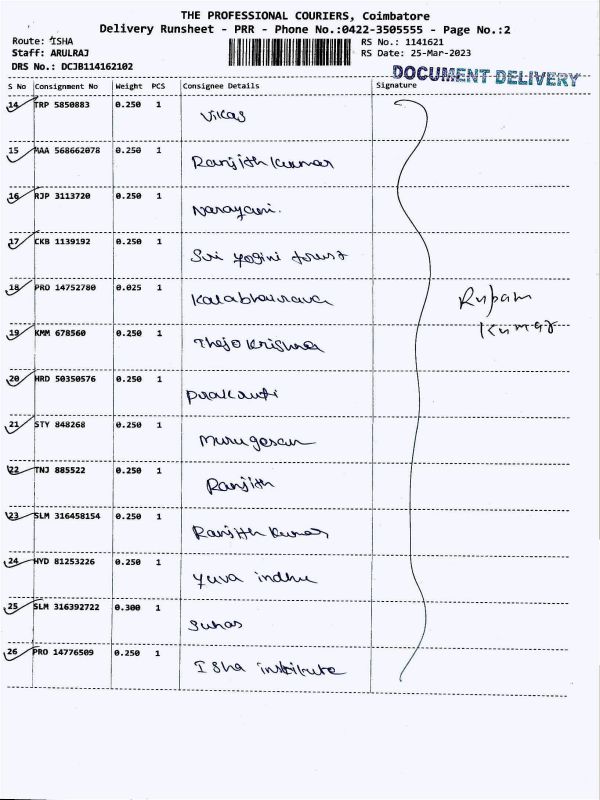 THE PROFESSIONAL COURIERS, Coimbatore
Delivery Runsheet - PRR - Phone No.:0422-3505555 - Page No.:2
Route: ISHA
RS No.: 1141621
Staff: ARULRAJ
RS Date: 25-Mar-2023
DRS No.: DCJB114162102
DOCUMENT DELIVERY
S No Consignment No Weight PCS Consignee Details Signature
14 TRP 5850883 0.250 1
Vikas
15 MAA 568662078 0.250 1
Ranjith Kumar
16 RJP 3113720 0.250 1
Narayani.
17 CKB 1139192 0.250 1
Sri yogini trust
18 PRO 14752780 0.025 1
Kalabhairava
Rupam
Kumar
19 KMM 678560 0.250 1
Thejo Krishna
20 HRD 50350576 0.250 1
21 STY 848268 0.250 1
Murugesan
22 TNJ 885522 0.250 1
Ranjith
23 SLM 316458154 0.250 1
Ranjith Kumar
24 HYD 81253226 0.250 1
Yuva indhu
25 SLM 316392722 0.300 1
Suhas
26 PRO 14776509 0.250 1
Isha institute